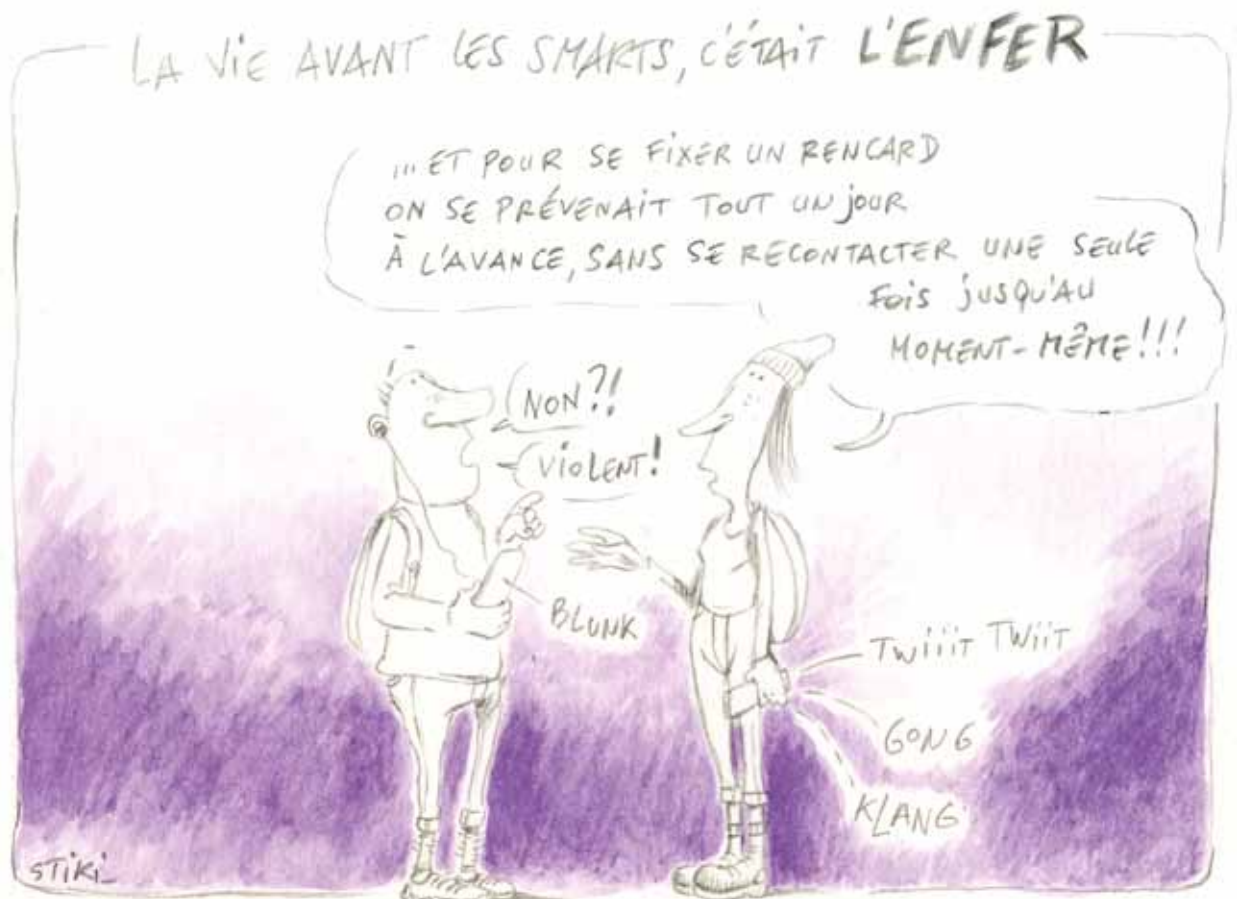 LA ViE AVANT LES SMARTS, C'ÉTAiT L'ENFER
... ET POUR SE FIXER UN RENCARD
ON SE PRÉVENAIT TOUT UN jOUR
À L'AVANCE, SANS SE RECONTACTER UNE SEULE
FOiS jUSQU'AU
MOMENT-MÊME!!!
NON?!
ViOLENT!
BLUNK
TWiiiT TWiiT
GONG
KLANG
STiKi